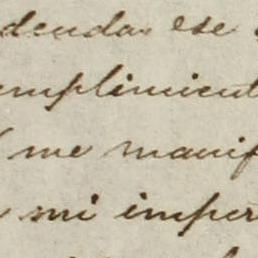 denda ese
mplimient
me manif
mi imper